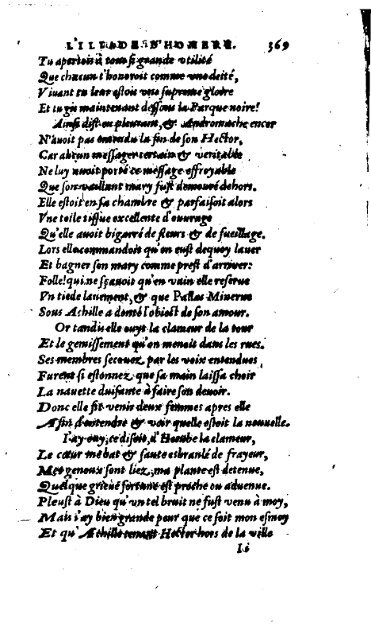 L'ILIADE D'HOMERE. 369
Tu aportois à tous si grande vtilité
Que chacun t'honoroit comme vne deité,
Viuant tu leur estois vne supreme gloire
Et tu gis maintenant dessous la Parque noire!
Ainsi dist en pleurant, & Andromache encor
N'auoit pas entendu la fin de son Hector,
Car aucun messager certain & veritable
Ne luy auoit porté ce message effroyable
Que son vaillant mary fust demeuré dehors.
Elle estoit en sa chambre & parfaisoit alors
Vne toile tissue excellente d'ouurage
Qu'elle auoit bigarré de fleurs & de fueillage.
Lors elle commandoit qu'on eust dequoy lauer
Et bagner son mary comme prest d'arriuer:
Folle! qui ne sçauoit qu'en vain elle reserue
Vn tiede lauement, & que Pallas Minerue
Sous Achille a donté l'obiect de son amour.
Or tandis elle ouyt la clameur de la tour
Et le gemissement qu'on menoit dans les rues.
Ses membres secouez, par les voix entendues
Furent si estonnez que sa main laissa choir
La nauette duisante à faire son deuoir.
Donc elle fit venir deux femmes apres elle
Afin d'entendre & voir quelle estoit la nouuelle.
I'ay ouy, ce disoit, d'Hecube la clameur,
Le cœur me bat & saute esbranlé de frayeur,
Mes genoux sont liez, ma plante est detenue,
Quelque grieue fortune est proche ou aduenue.
Pleust à Dieu qu'un tel bruit ne fust venu à moy,
Mais i'ay bien grande peur que ce soit mon esmoy
Et qu'Achille tenant Hector hors de la ville
Ii